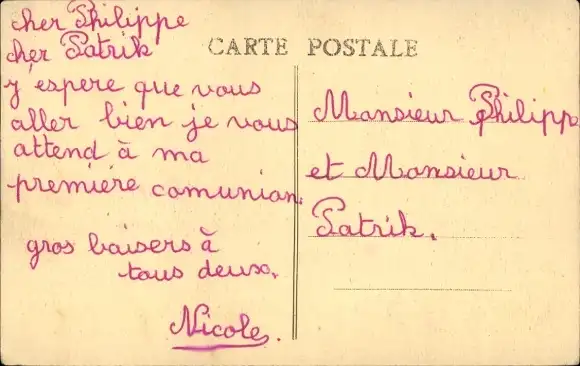 cher Philippe
cher Patrik
CARTE POSTALE
y éspere que vous
aller bien je vous
attend à ma
premiére comunion.
gros baisers à
tous deux.
Nicole.
Monsieur Philippe
et Monsieur
Patrik.